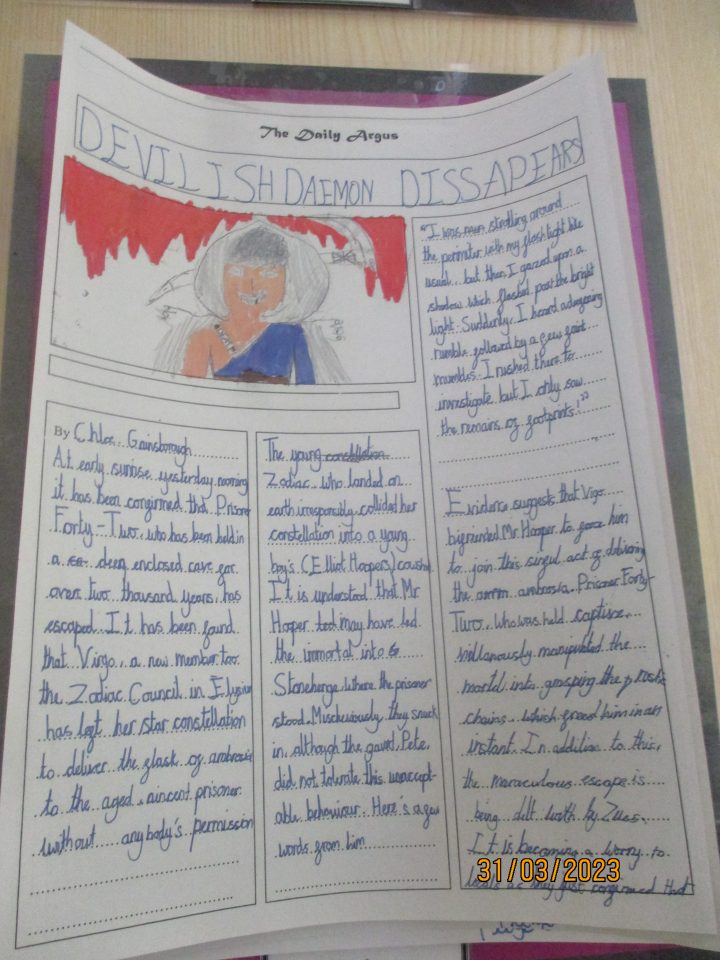 The Daily Argus
DEVILISH DAEMON DISSAPEARS
By Chloe Gainsborough
At early sunrise yesterday morning
it has been confirmed that Prisoner
Forty-Two, who has been held in
a deep enclosed cave for
over two thousand years, has
escaped. It has been found
that Virgo, a new member too
the Zodiac Council in Elysium
has left her star constellation
to deliver the flask of ambrosia
to the aged, aincent prisoner
without anybody's permission
The young constellation
Zodiac who landed on
earth irresponsibly collided her
constellation into a young
boy's (Elliot Hoopers)
It is understood that Mr
Hooper may have led
the immortal into
Stonehenge, where the prisoner
stood. Mischeviously, they snuck
in although the gaurd, Pete,
did not tolerate this unaccept-
able behaviour. Here's a few
words from him
"I was strolling around
the perimeter with my flashlight like
usual, but then I gazed upon a
shadow which flashed past the bright
light. Suddenly, I heard a
rumble followed by a few faint
mumbles. I rushed there to
investigate but I only saw
the remains of footprints!"
Evidence suggests that Virgo
Mr Hooper to force him
to join this sinful act of delivering
the ambrosia. Prisoner Forty-
Two, who was held captive,
villanously manipulated the
mortal into grasping the
chains, which freed him in an
instant. In addition to this,
the maraculous escape is
being delt with by Zues.
It is becoming a worry to
locals as they just confirmed that
31/03/2023